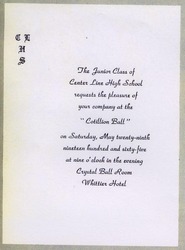 CL
HS
The Junior Class of
Center Line High School
requests the pleasure of
your company at the
"Cotillion Ball"
on Saturday, May twenty-ninth
nineteen hundred and sixty-five
at nine o'clock in the evening
Crystal Ball Room
Whittier Hotel